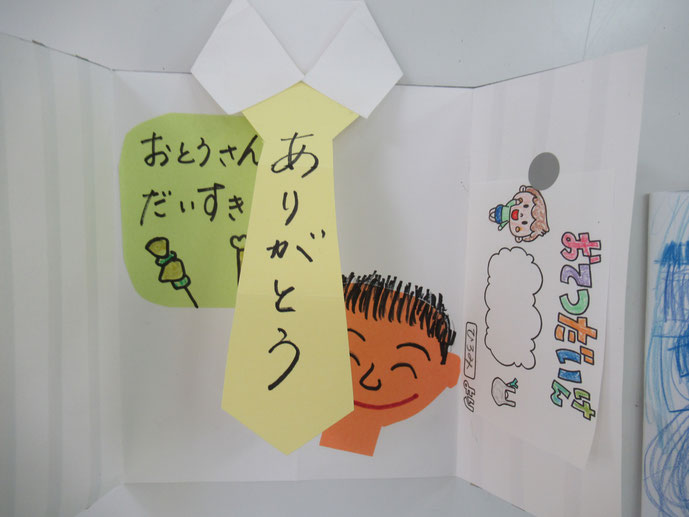 おとうさん
だいすき
ありがとう
おてつだいけん
より